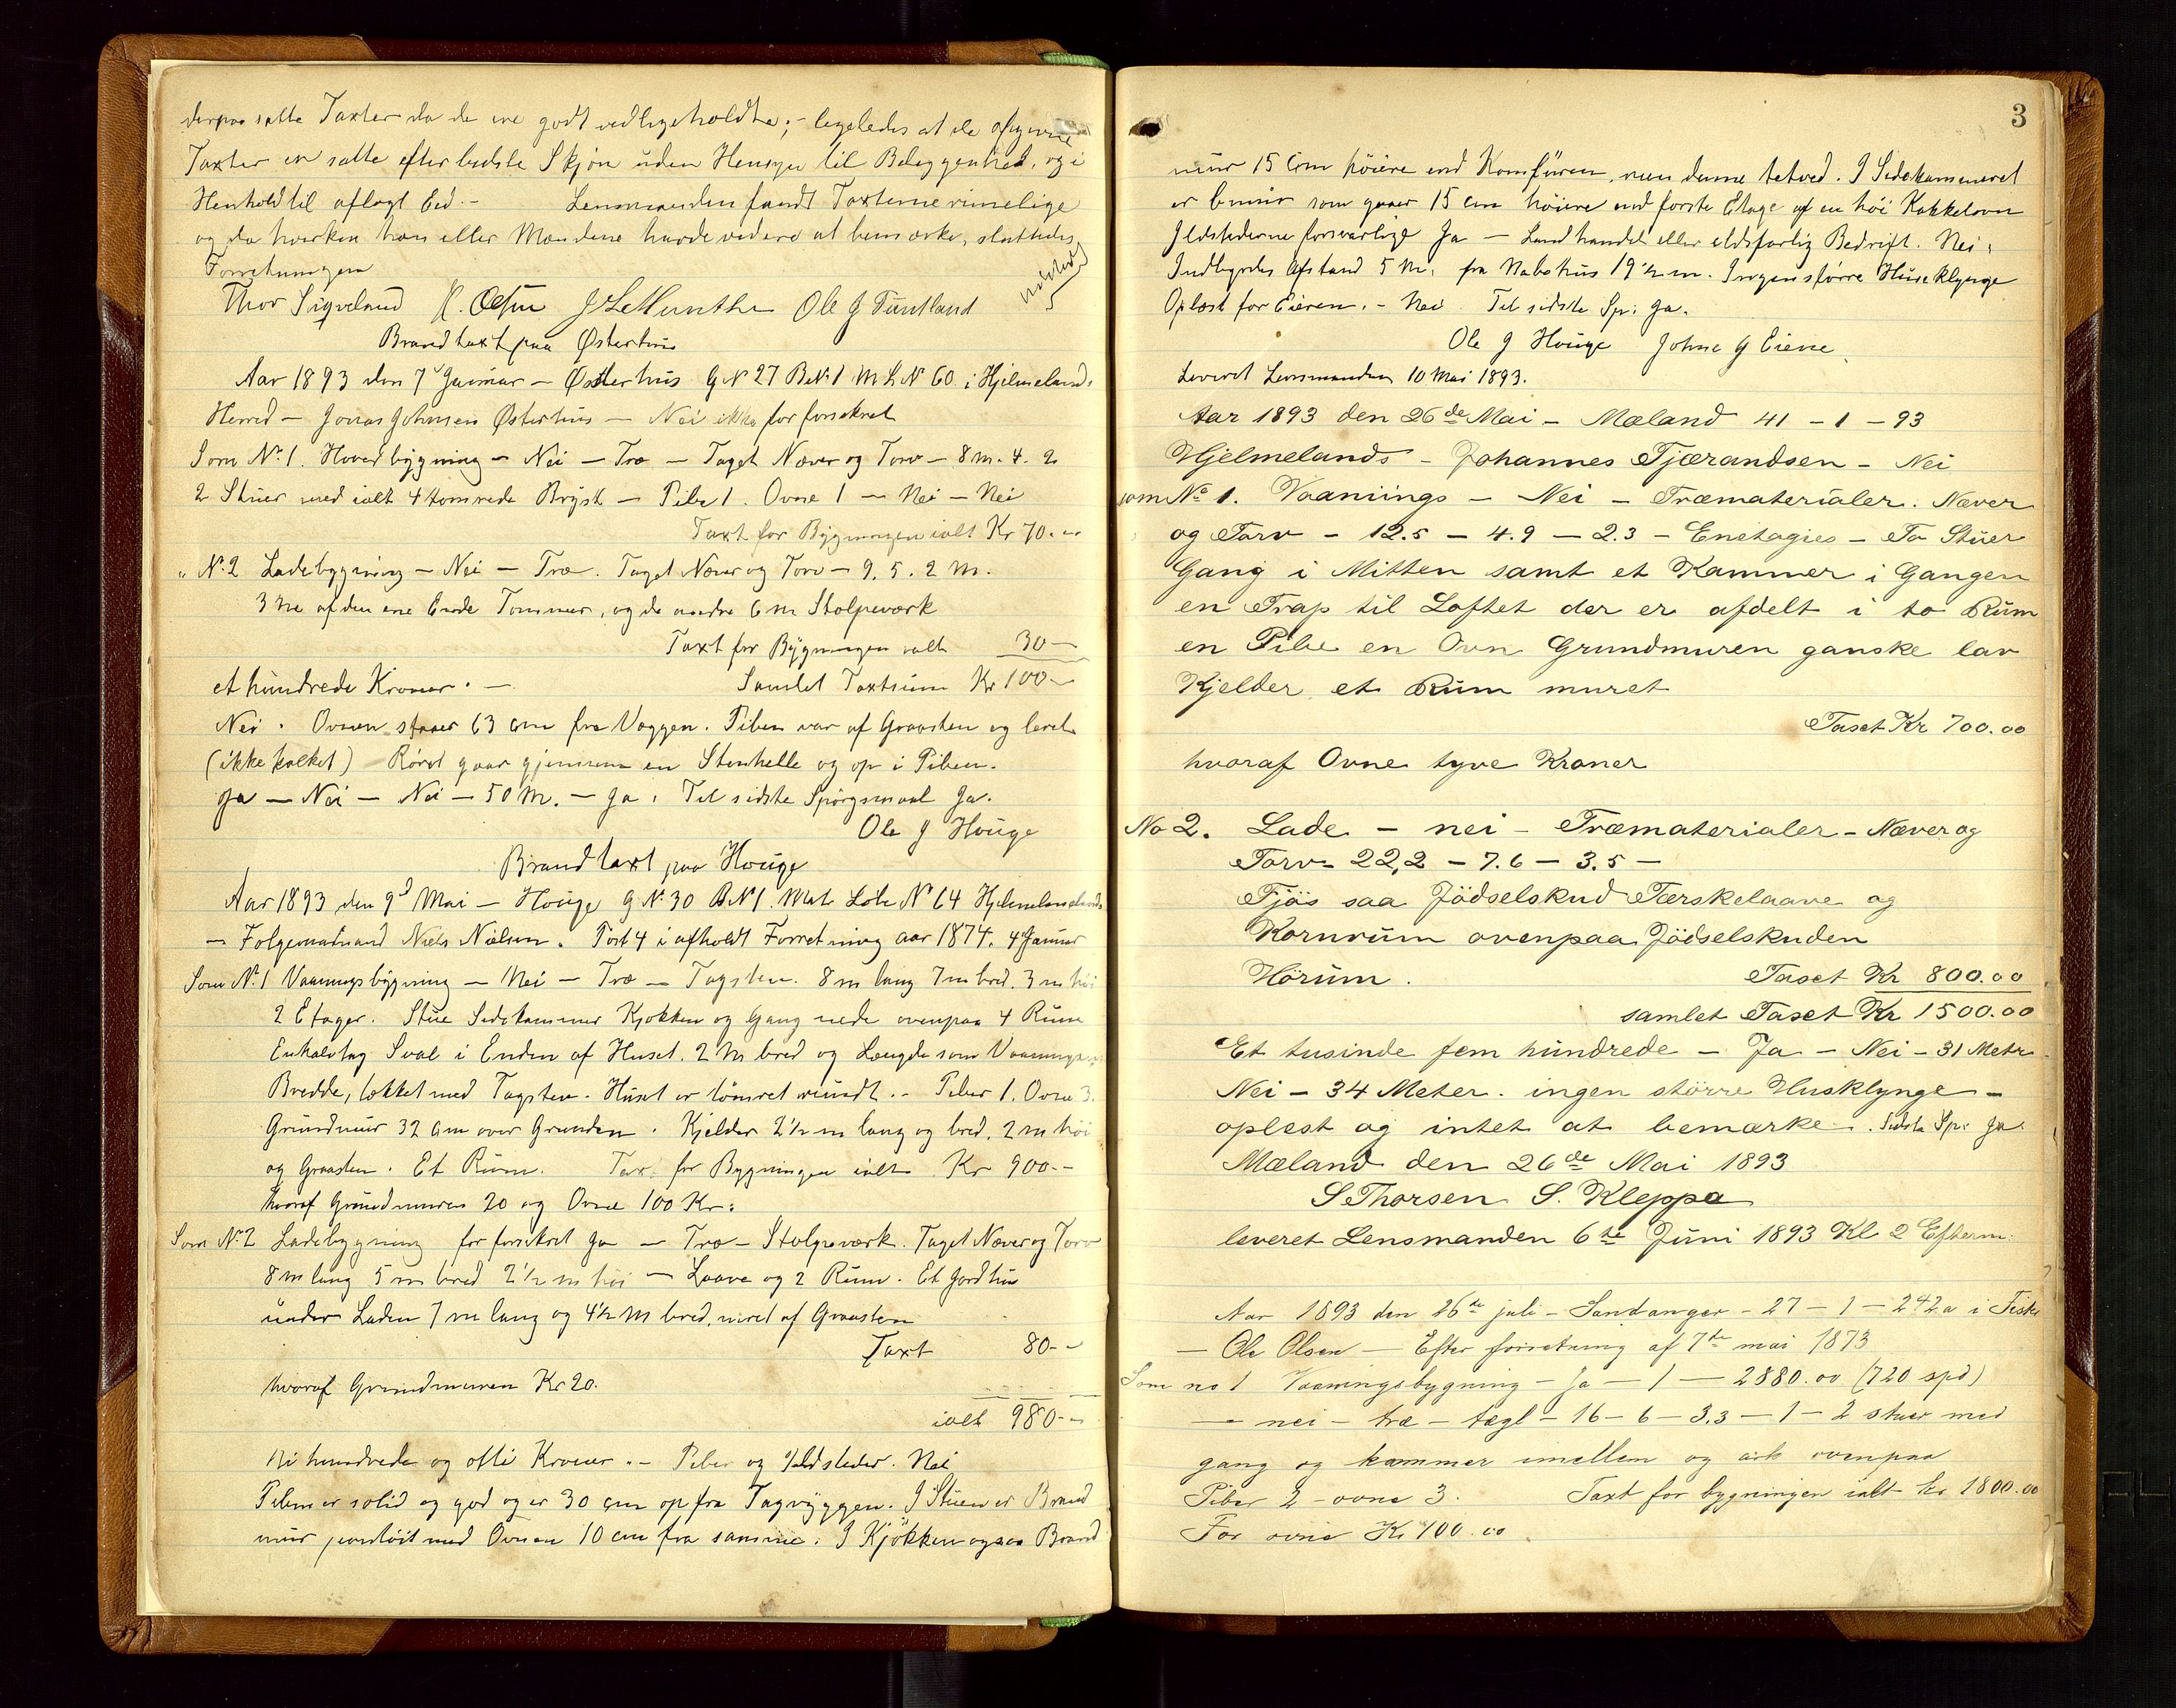 derpaa satte Taxter da de ere godt vedligeholdte; ligeledes at de afgivne
Taxter er satte efter bedste Skjøn uden Hensyn til Beliggenhed, og i
Henhold til aflagt Ed. - Lensmanden fandt Taxterne rimelige
og da hverken han eller Mændene havde videre at bemærke, sluttedes
Forretningen
Thor Sigvelund Ole J Tuntland
Brandtaxt paa Østerhus
Aar 1893 den 7 Januar - Østerhus G N 27 B N 1 M L N 60 i Hjelmelands
Herred - Jonas Johnsen Østerhus - Nei ikke før forsekret
Som No 1. Hovedbygning - Nei - Træ - Taget Næver og Torv - 8 m. 4. 2
2 Stuer med ialt 4 tømrede Bryst - Pibe 1. Ovne 1 - Nei - Nei
Taxt for Bygningen ialt Kr 70. -
" No 2 Ladebygning - Nei - Træ. Taget Næver og Torv - 9. 5. 2 M.
3 m af den ene Ende Tømmer, og de andre 6 m Stolpeværk
Taxt for Bygningen ialt 30 -
et hundrede Kroner. - Samlet Taxtsum Kr 100 -
Nei. Ovnen staaer 63 cm fra Væggen. Piben var af Graasten og leret
(ikke kalket) Røret gaar gjennem en Stenhelle og op i Piben.
Ja - Nei - Nei - 50 M. - Ja. Til sidste Spørgsmaal Ja.
Ole J Houge
Brandtaxt paa Houge
Aar 1893 den 9d Mai - Houge G N. 30 B N 1. Mat. Løbe N 64 Hjelmelands
- Følgemand Niels Nielsen. Post 4 i afholdt Forretning aar 1874. 4 Januar
Som No 1 Vaaningsbygning - Nei - Træ - Tagsten. 8 m lang 7 m bred. 3 m høi
2 Etager. Stue Sidekammer Kjøkken og Gang nede ovenpaa 4 Rum
Enkelvæg Sval i Enden af Huset. 2 M bred og Længde som
Bredde, tækket med Tagsten. Huset er tømret rundt. - Piber 1. Ovne 3.
Grundmur 32 cm over Grunden. Kjelder 2½ m lang og bred. 2 m høi
og Graasten. Et Rum. Taxt for Bygningen ialt Kr 900. -
hvoraf Grundmuren 20 og Ovne 100 Kr.
Som No 2 Ladebygning før forsekret Ja - Træ - Stolpeværk. Taget Næver og Torv
8 m lang 5 m bred 2½ m høi - Laave og 2 Rum. Et Jordhus
under Laden 7 m lang og 4½ M bred, muret af Graasten
Taxt 80 -
hvoraf Grundmuren Kr 20.
ialt 980 -
Ni hundrede og otti Kroner. - Piber og Ildsteder. Nei
Piben er solid og god og er 30 cm op fra Tagryggen. I Stuen er Brand
mur forsynt med Ovnen 10 cm fra samme. I Kjøkken ogsaa Brand
3
mur 15 Cm høiere end Komfuren, men denne tetved. I Sidekammeret
er bmur som gaaer 15 cm høiere end første Etage af en høi Kakkelovn
Ildstederne forsvarlige Ja - Landhandel eller ildsfarlig Bedrift. Nei.
Indbyrdes Afstand 5 M. fra Nabohus 19½ m. Ingen større Huseklynge
Oplæst for Eieren. - Nei. Til sidste Sp: Ja.
Ole J Houge Johne G Eiene
Leveret Lensmanden 10 Mai 1893.
Aar 1893 den 26de Mai - Mæland 41 - 1 - 93
Hjelmelands - Johannes Tjærandsen - Nei
som No 1. Vaanings - Nei - Træmaterialer. Næver
og Torv - 12.5 - 4.9 - 2.3 - Enetagies - To Stuer
Gang i Mitten samt et Kammer i Gangen
en Trap til Loftet der er afdelt i to Rum
en Pibe en Ovn Grundmuren ganske lav
Kjelder et Rum muret
Taxt Kr 700.00
hvoraf Ovne tyve Kroner
No 2. Lade - nei - Træmaterialer - Næver og
Torv - 22,2 - 7.6 - 3.5 -
Fjös saa Jödselskud Tærskelaave og
Kornrum ovenpaa Jödselskuden
Hörum. Taxt Kr 800.00
samlet Taxt Kr 1500.00
Et tusinde fem hundrede - Ja - Nei - 31 Metr
Nei - 34 Meter. ingen större Husklynge -
oplest og intet at bemærke. Sidste Sp: Ja
Mæland den 26de Mai 1893
S Thorsen S. Kleppa
leveret Lensmanden 6te Juni 1893 Kl 2 Efterm.
Aar 1893 den 26de juli - Sandanger - 27 - 1 - 242a i Fisk
- Ole Olsen - Efter forretning af 7de mai 1873
Som no 1 Vaaningsbygning - Ja - 1 - 2880.00 (720 spd)
- nei - træ - tægl - 16 - 6 - 3.3 - 1 - 2 stuer med
gang og kammer imellem og ark ovenpaa
Piber 2 - ovne 3. Taxt for bygningen ialt kr 1800.00
For ovne Kr 100.00